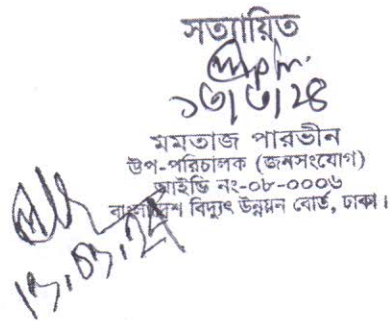 সত্যায়িত
১৩/৩/২৪
মমতাজ পারভীন
উপ-পরিচালক (জনসংযোগ)
আইডি নং-০৮-০০০৬
বাংলাদেশ বিদ্যুৎ উন্নয়ন বোর্ড, ঢাকা।
13.03.24